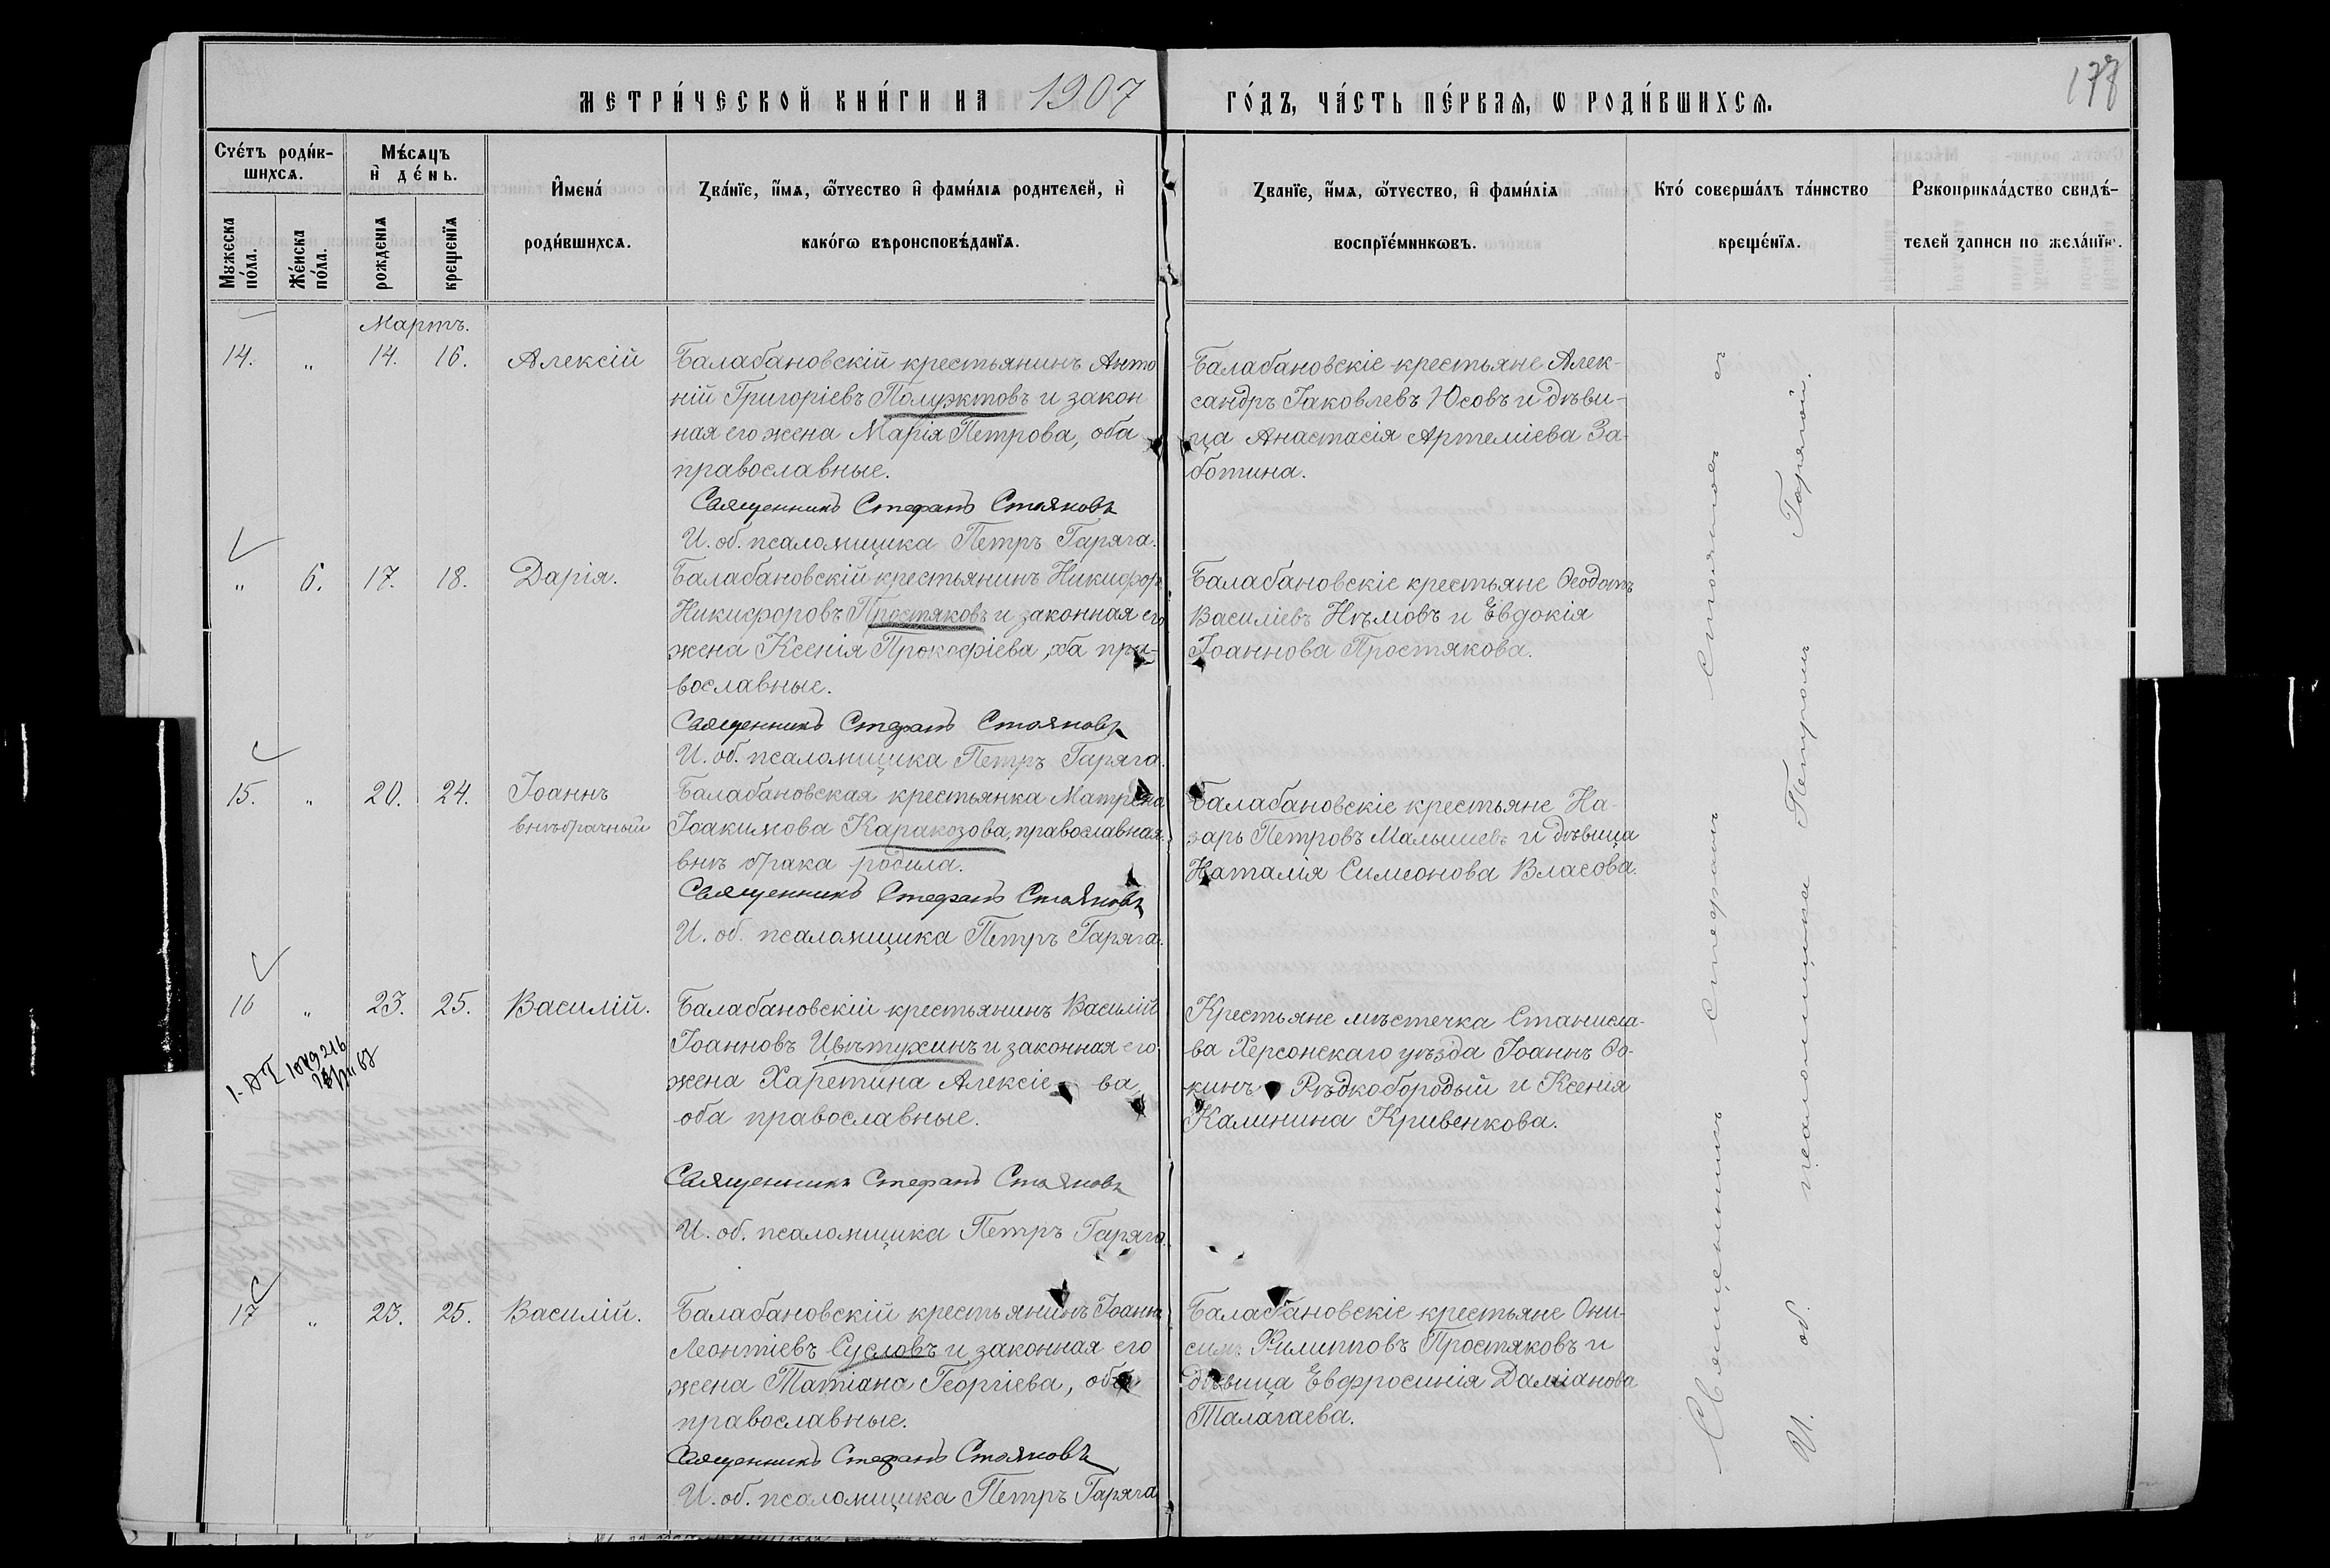 МЕТРИ́ЧЕСКОЙ КНИ́ГИ НА 1907
ГО́ДЪ, ЧА́СТЬ ПЕ́РВАѦ, Ѡ РОДИ́ВШИХСѦ.
Сче́тъ роди́в-
шихсѧ.
Мꙋжеска
по́ла.
Же́нска
по́ла.
Мѣ́сѧцъ
и҆ де́нь.
рожденїѧ
крещенїѧ
И҆мена́
роди́вшихсѧ.
Зва́нїе, и҆́мѧ, ѻ҆́тчество и҆ фами́лїѧ родителей, и҆
како́гѡ вѣроисповѣ́данїѧ.
Зва́нїе, и҆́мѧ, ѻ҆́тчество, и҆ фами́лїѧ
воспрїе́мникѡвъ.
Кто́ соверша́лъ та́инство
креще́нїѧ.
Рꙋкоприкла́дство свидѣ́-
телей записи по жела́нїю.
Мартъ.
14. „ 14. 16. Алексій
Балабановскій крестьянинъ Анто
ній Григоріевъ Полуэктовъ и закон
ная его жена Марія Петрова, оба
православные.
Священникъ Стефанъ Стояновъ
И. об. псаломщика Петръ Гаряга.
Балабановскіе крестьяне Алек-
сандръ Іаковлевъ Юсовъ и дѣви-
ца Анастасія Артеміева За-
ботина.
„ 6. 17. 18. Дарія.
Балабановскій крестьянинъ Никифор
Никифоровъ Простяковъ и законная его
жена Ксенія Прокофіева, оба пра-
вославные.
Священникъ Стефанъ Стояновъ
И. об. псаломщика Петръ Гаряга.
Балабановскіе крестьяне Ѳеодотъ
Василіевъ Нѣмовъ и Евдокія
Іоаннова Простякова.
15. „ 20. 24. Іоаннъ
внѣбрачный
Балабановская крестьянка Матрена
Іоакимова Каракозова, православная.
внѣ брака родила.
Священникъ Стефанъ Стояновъ
И. об. псаломщика Петръ Гаряга.
Балабановскіе крестьяне На-
зарь Петровъ Малышевъ и дѣвица
Наталія Симеонова Власова.
16 „ 23. 25. Василій.
Балабановскій крестьянинъ Василій
Іоанновъ Цвѣтухинъ и законная его
жена Харетина Алексіе ва,
оба православные.
Священникъ Стефанъ Стояновъ
И. об. псаломщика Петръ Гаряга.
Крестьяне мѣстечка Станисла-
ва Херсонскаго уѣзда Іоаннъ Ѳо-
кинъ Рѣдкобородый и Ксенія
Калинина Кривенкова.
17 „ 23. 25. Василій.
Балабановскій крестьянинъ Іоаннъ
Леонтіевъ Сусловъ и законная его
жена Татіана Георгіева, оба
православные.
Священникъ Стефанъ Стояновъ
И. об. псаломщика Петръ Гаряга
Балабановскіе крестьяне Они-
симъ Филипповъ Простяковъ и
дѣвица Евфросинія Даміанова
Талагаева.
Священникъ Стефанъ Стояновъ съ
И. об. псаломщика Петромъ Гарягой.